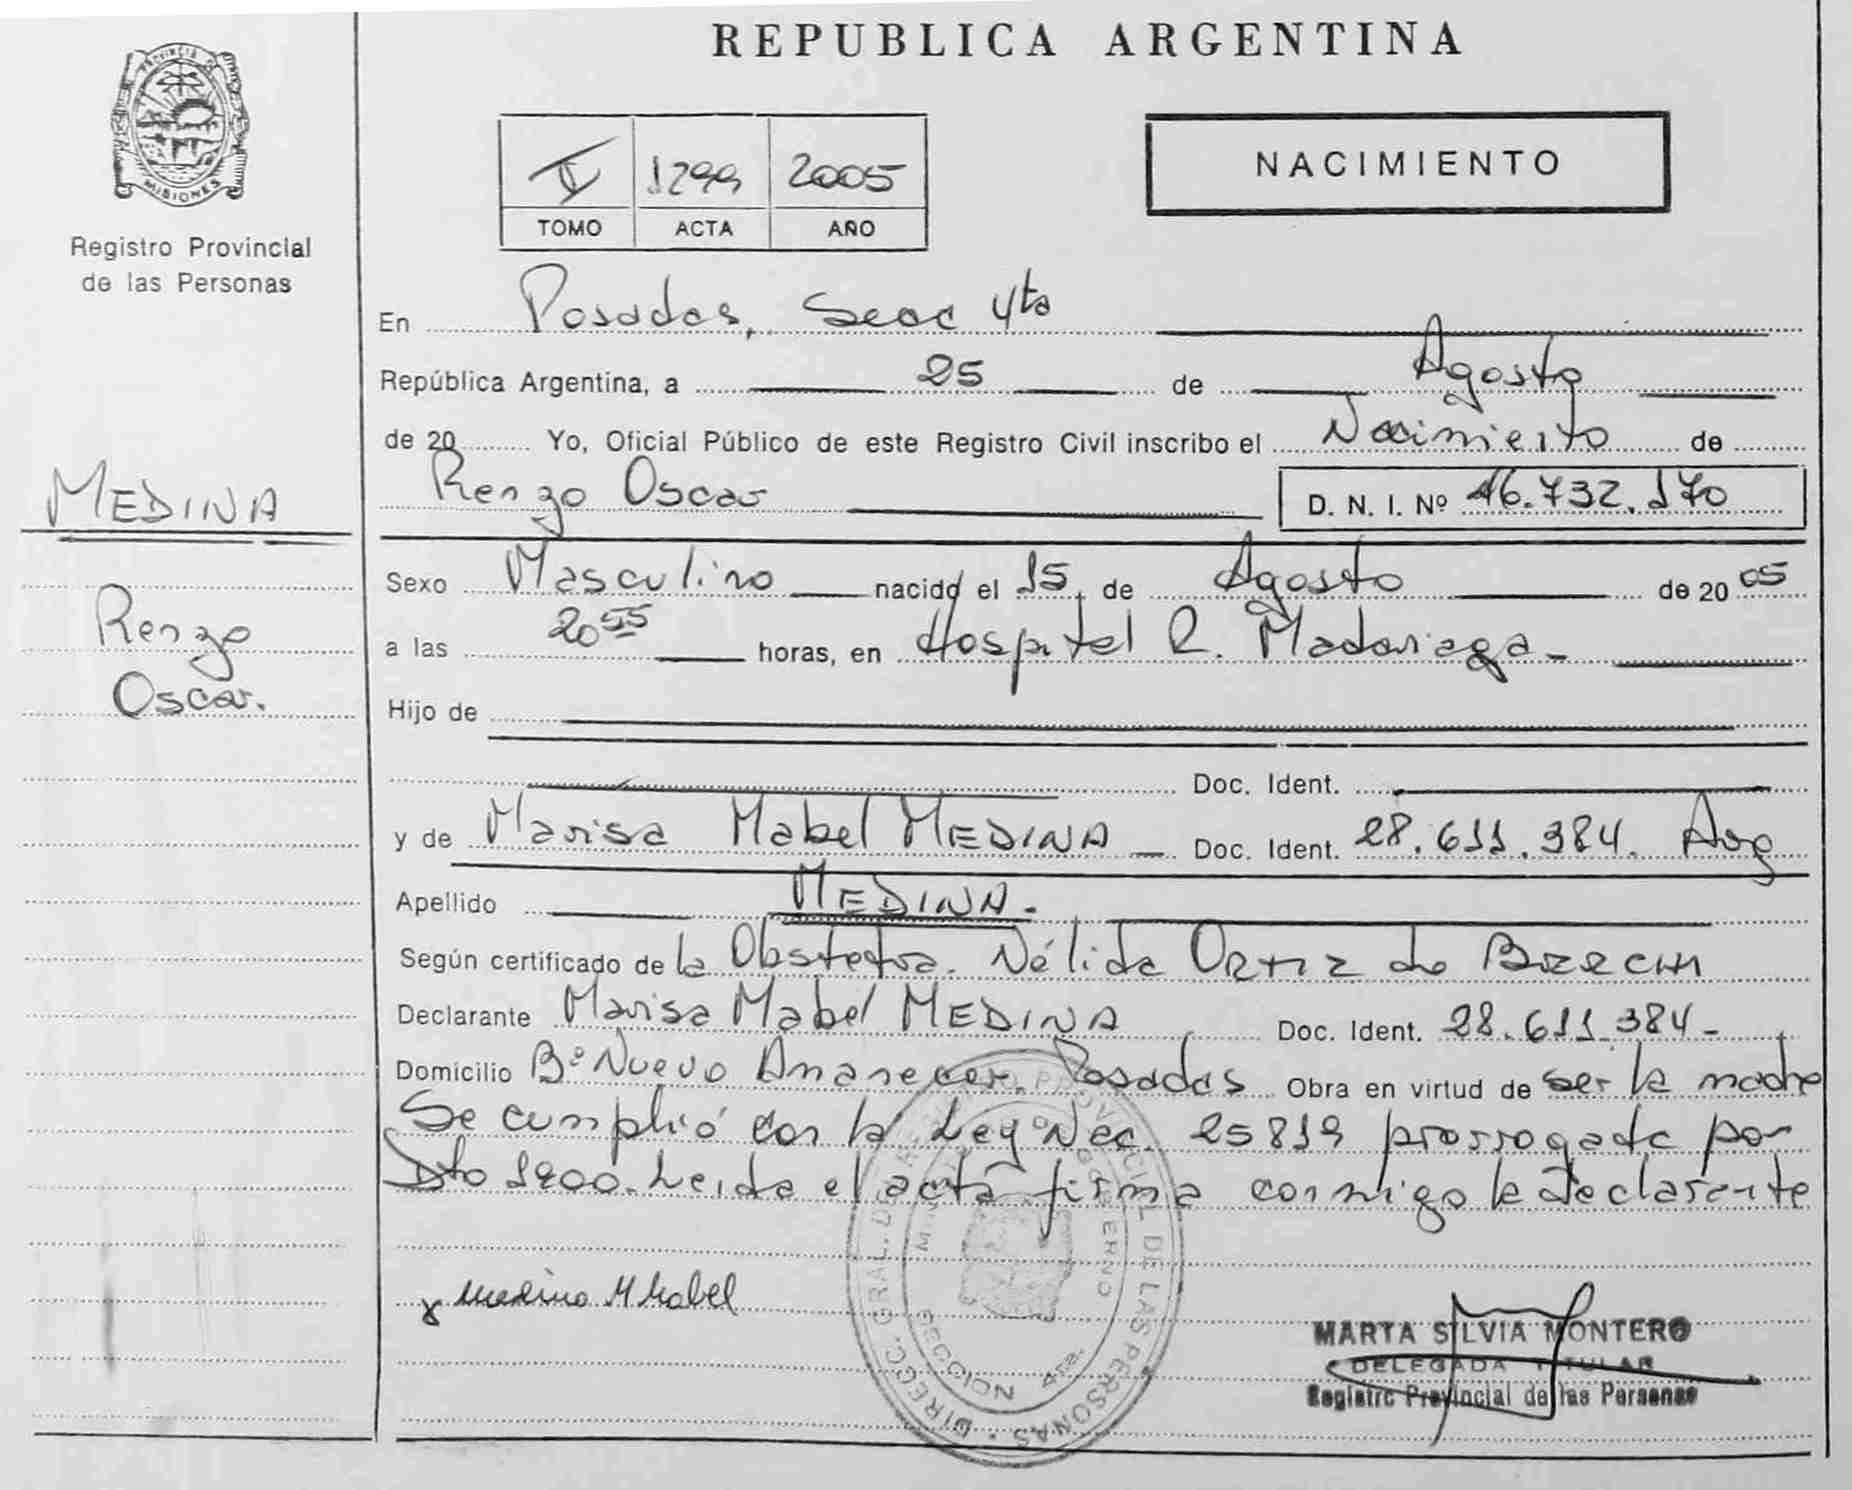 REPUBLICA ARGENTINA
PROVINCIA DE
MISIONES
Registro Provincial
de las Personas
NACIMIENTO
1299 2005
TOMO ACTA AÑO
En Posadas, Secc 4ta
República Argentina, a 25 de Agosto
de 20 Yo, Oficial Público de este Registro Civil inscribo el Nacimiento de
Renzo Oscar D. N. I. Nº 46.732.170
MEDINA
Renzo
Oscar.
Sexo Masculino nacido el 15 de Agosto de 2005
a las 20 55 horas, en Hospital R. Madariaga
Hijo de
Doc. Ident.
y de Marisa Mabel MEDINA Doc. Ident. 28.611.384. Arg
Apellido MEDINA.
Según certificado de la Obstetra. Nélida Ortiz de
Declarante Marisa Mabel MEDINA Doc. Ident. 28.611.384
Domicilio Bº Nuevo Amanecer. Posadas Obra en virtud de ser la madre
Se cumplió con la Ley Nac. 25819 prorrogada por
Dto 1900. Leida el acta firma conmigo la declarante
Medina M Mabel
MARTA SILVIA MONTERO
DELEGADA TITULAR
Registro Provincial de las Personas
DIRECC. GRAL. DEL REGISTRO PROVINCIAL DE LAS PERSONAS
GOBIERNO
SECCION 4ta.